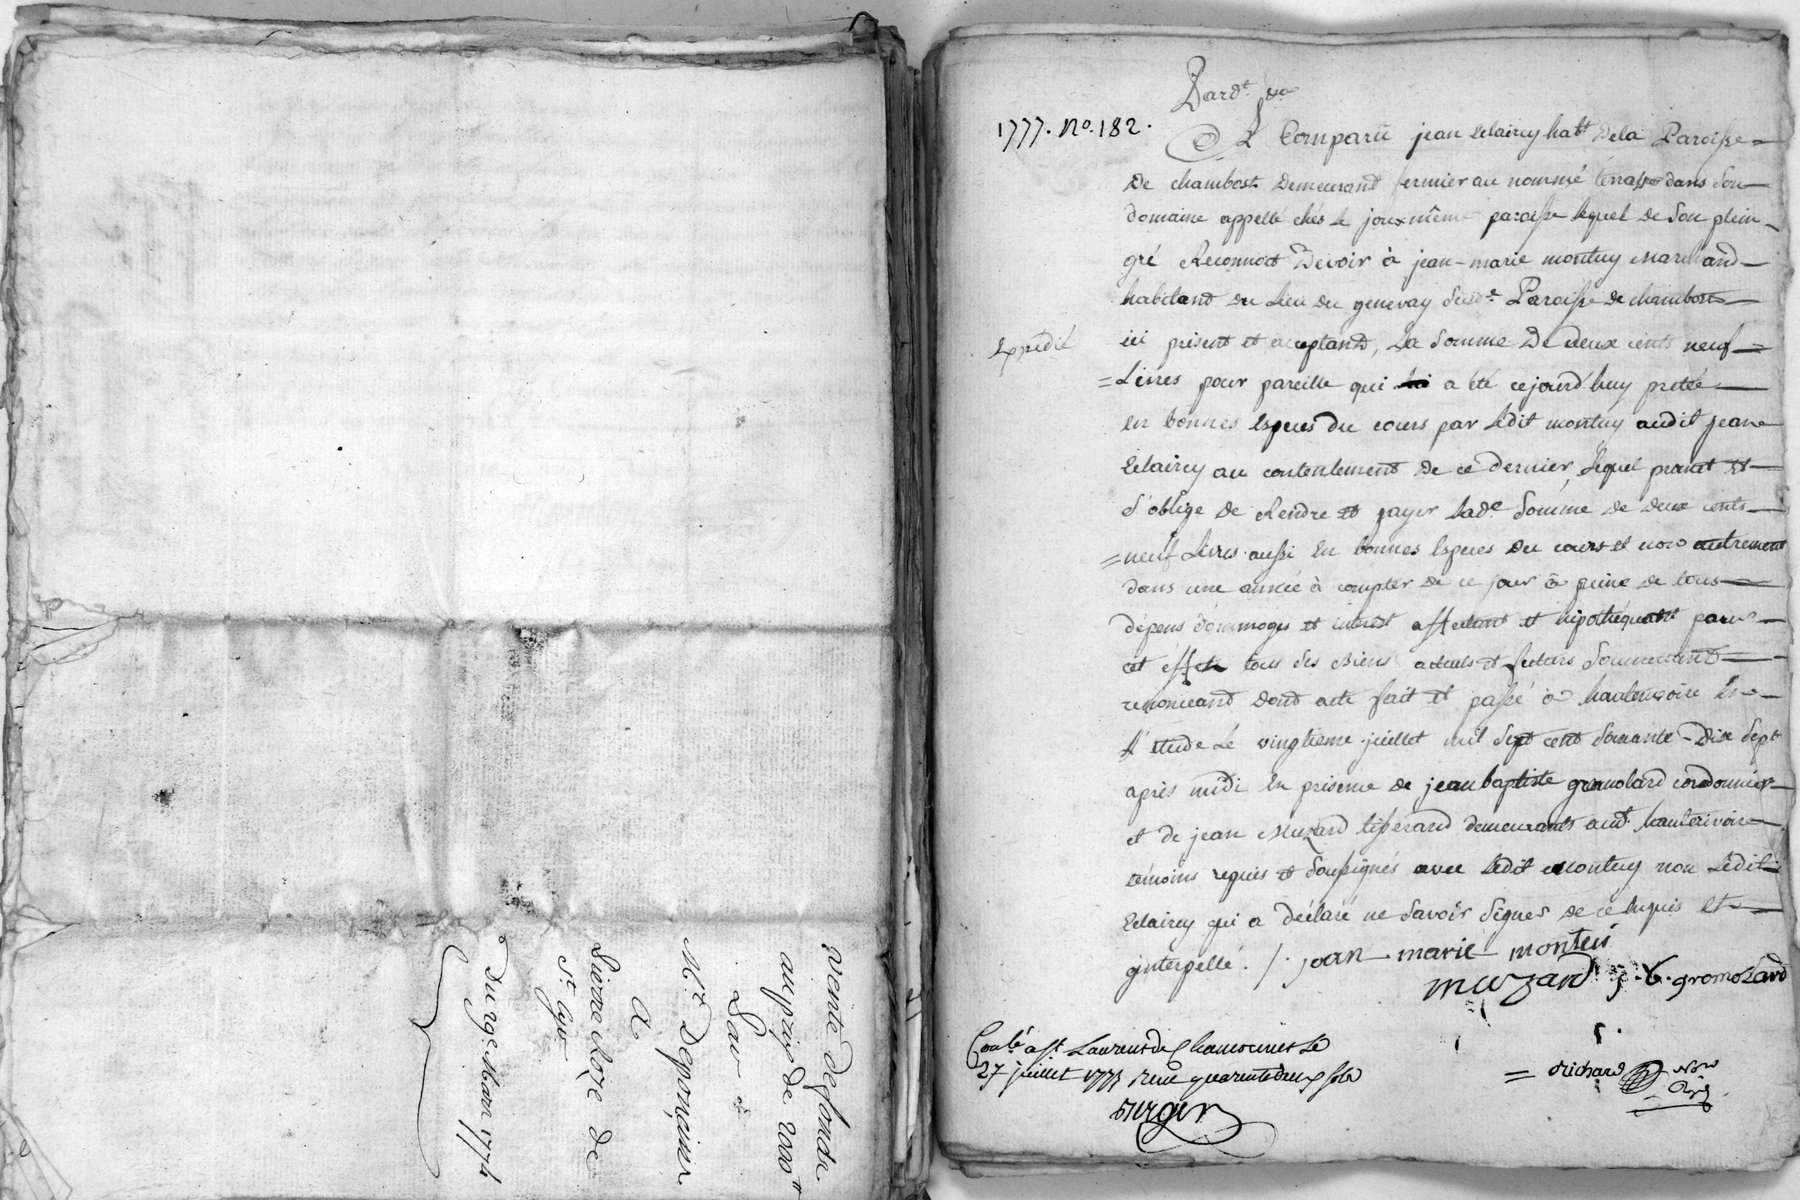 vente de fonds
au prix de 2000 tt
Par
Mr Deponcins
A
Pierre Roze de
St Cyr
Du 19e Mars 1774
Pardt
1777. No. 182.
A Comparû jean Eclaircy habt dela Paroisse
De chambost Demeurant fermier au nommé terrasse dans son
domaine appellé chés le joux même paroisse lequel de son plein
gré Reconnoit Devoir à jean-marie montuy Marchand
habitant du Lieu du genevay susde Paroisse de chambost
Expedié
ici présent et acceptant, La Somme De deux cents neuf
= Livres pour pareille qui lui a été cejourd'huy pretée
en bonnes Especes du cours par Ledit montuy audit jean
Eclaircy au contentement de ce dernier, Lequel promet et
s'oblige de Rendre et payer lade Somme de deux cents
= neuf Livres aussi en bonnes Especes du cours et non autrement
dans une année à compter de ce jour à peine de tous
dépens dommages et interest affectant et hipothéquant pour
cet effet tous ses Biens actuels et futurs Soumettant
renonceant dont acte fait et passé à hauterivoire En
L'étude Le vingtieme juillet mil Sept cent Soixante-Dix Sept
après midi En présence de jean baptiste gromolard cordonnier
et de jean Muzard tisserand demeurants audt hauterivoire
témoins requis et soussignés avec Ledit Montuy non Ledit
Eclaircy qui a déclaré ne savoir Signer de ce Enquis et
interpellé. /. jean marie monteü
muzard j. b. gromolard
Conlé à St Laurent de Chamousset le
27 juillet 1777 reçu quarente deux sols
Berger
= Richard Nore
Royal